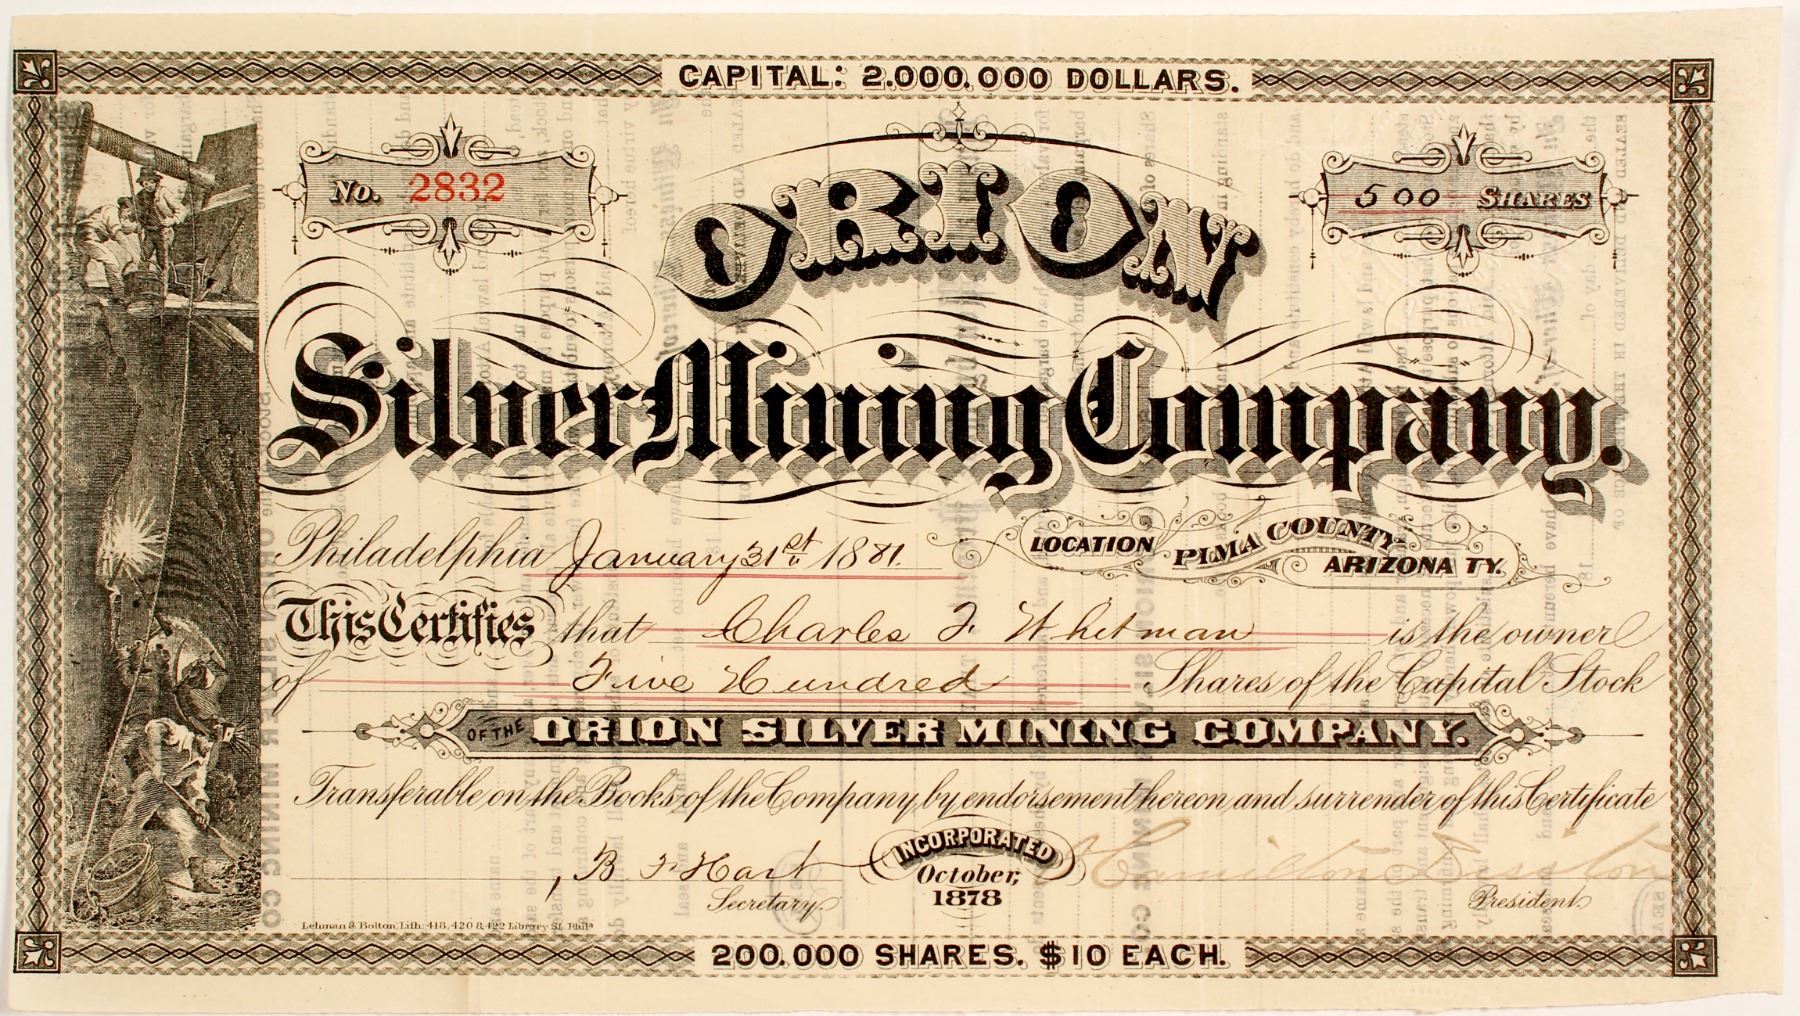 CAPITAL: 2.000.000 DOLLARS.
No. 2832
500 SHARES
ORION
Silver Mining Company.
Philadelphia January 31st 1881.
LOCATION PIMA COUNTY ARIZONA TY.
This Certifies that Charles F. Whitman is the owner
of Five Hundred Shares of the Capital Stock
OF THE ORION SILVER MINING COMPANY.
Transferable on the Books of the Company by endorsement hereon and surrender of this Certificate
B F Hart
Secretary.
INCORPORATED
October,
1878
Hamilton Disston
President.
Lehman & Bolton, Lith: 418, 420 & 422 Library St. Phila
200.000 SHARES. $10 EACH.